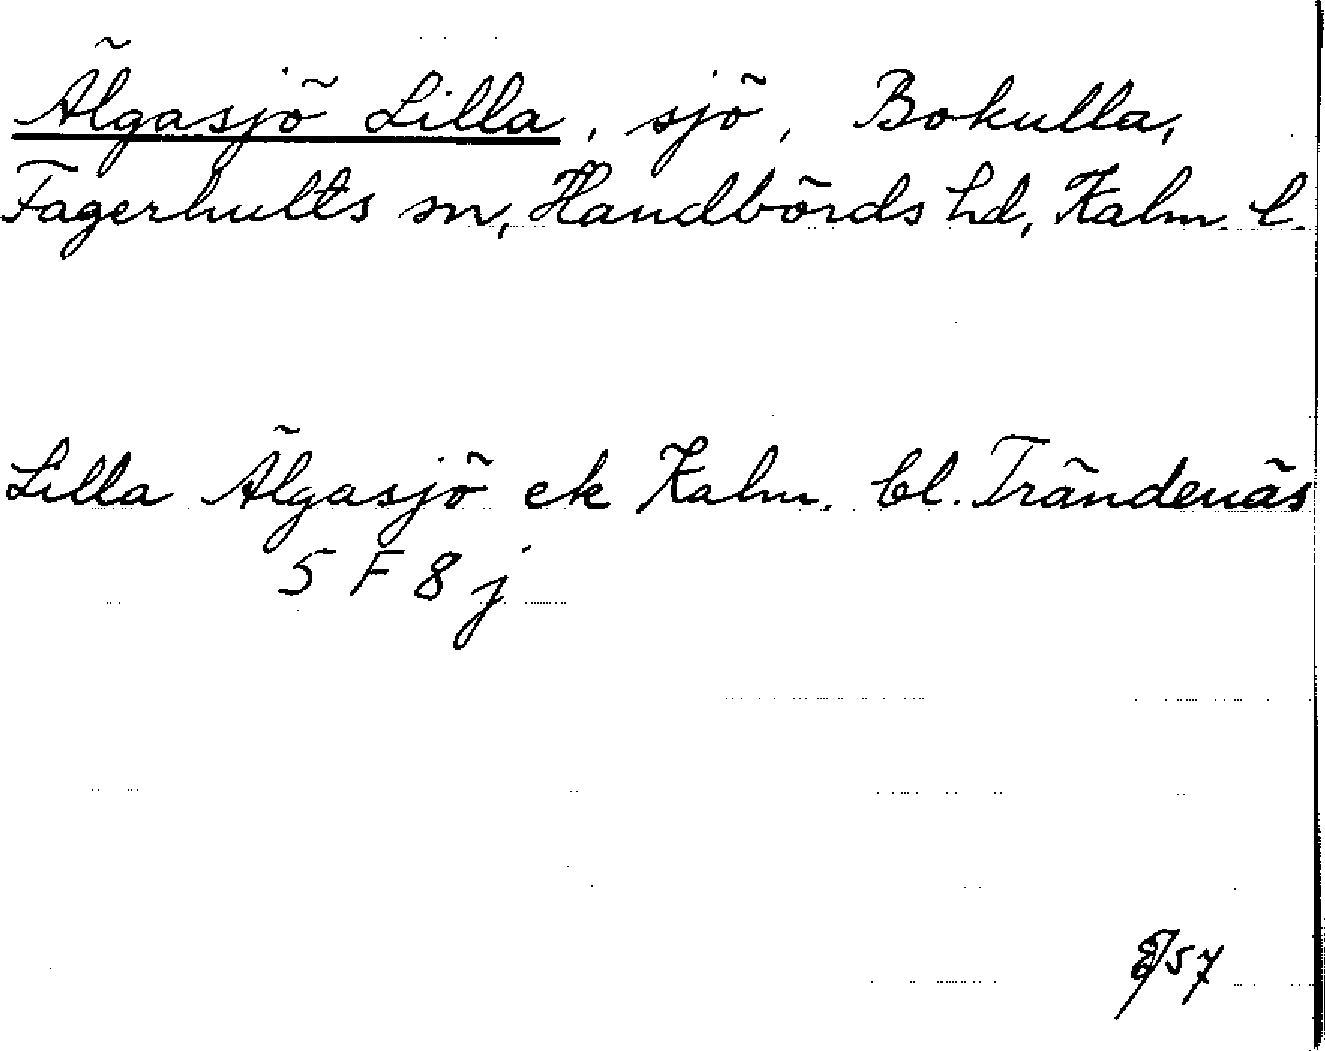 Älgasjö Lilla, sjö, Bokulla,
Fagerhults sn, Handbörds hd, Kalm. l.
Lilla Älgasjö ek Kalm. bl. Trändenäs
5 F 8 j
57